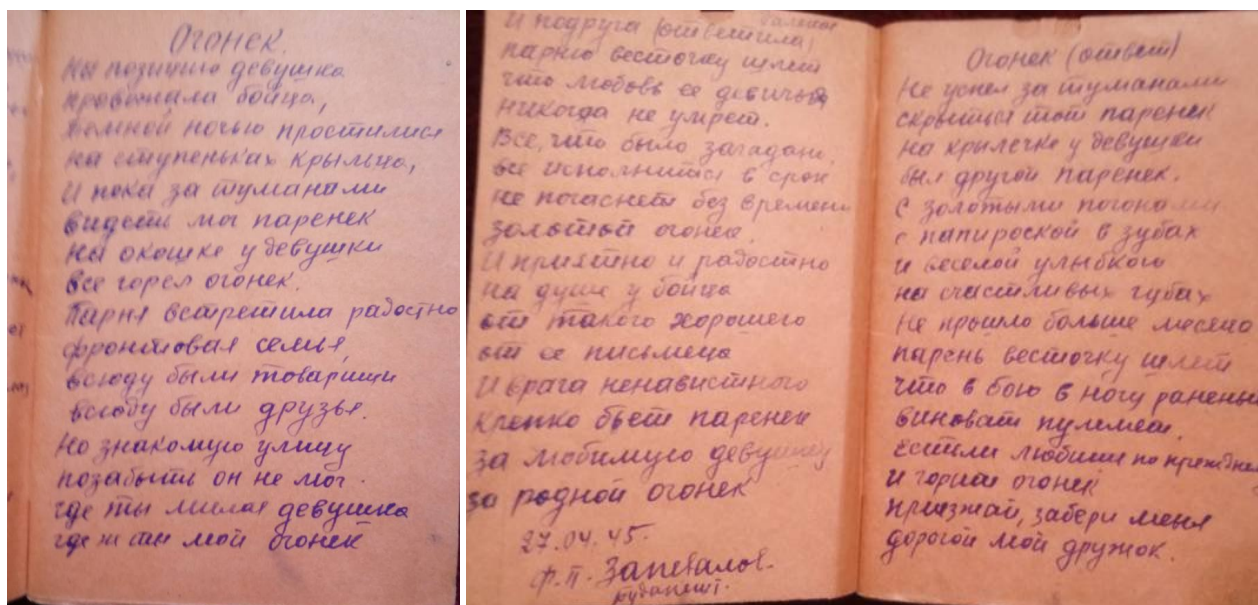 Огонек.
На позицию девушка
провожала бойца,
темной ночью простилися
на ступеньках крыльца,
И пока за туманами
видеть мог паренек
на окошке у девушки
все горел огонек.
Парня встретила радостно
фронтовая семья,
всюду были товарищи
всюду были друзья.
Но знакомую улицу
позабыть он не мог.
где ты милая девушка
где ж ты мой огонек
И подруга (ответила) далекая
парню весточку шлет
что любовь ее девичья
никогда не умрет.
Все, что было загадано,
все исполнится в срок
не погаснет без времени
золотой огонек.
И приятно и радостно
на душе у бойца
от такого хорошего
от ее письмеца
И врага ненавистного
крепко бьет паренек
за любимую девушку
за родной огонек
27.04.45.
ф.п. Запевалов.
Будапешт.
Огонек (ответ)
Не успел за туманами
скрыться тот паренек
на крылечке у девушки
был другой паренек.
С золотыми погонами
с папироской в зубах
и веселой улыбкою
на счастливых губах
Не прошло больше месяца
парень весточку шлет
что в бою в ногу раненый
виноват пулимет.
Естли любиш по прежднему
и горит огонек
приезжай, забери меня
дорогой мой дружок.